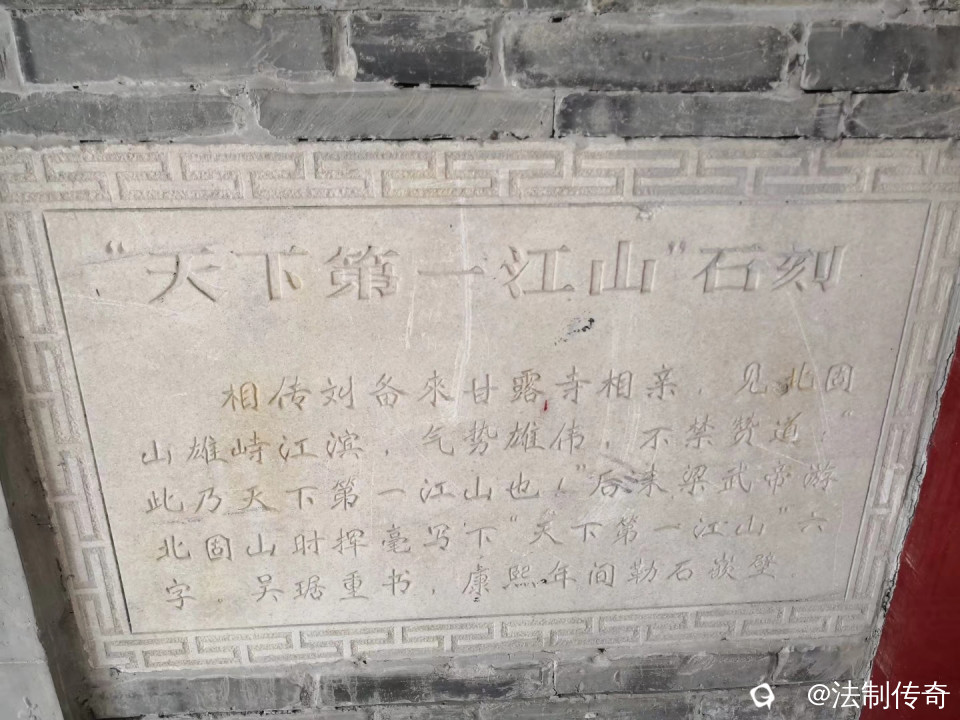 “天下第一江山”石刻
相传刘备來甘露寺相亲，见北固
山雄峙江滨，气势雄伟，不禁赞道：“
此乃天下第一江山也！”后来梁武帝游
北固山时挥毫写下“天下第一江山”六
字．吴琚重书，康熙年间勒石嵌壁
@法制传奇